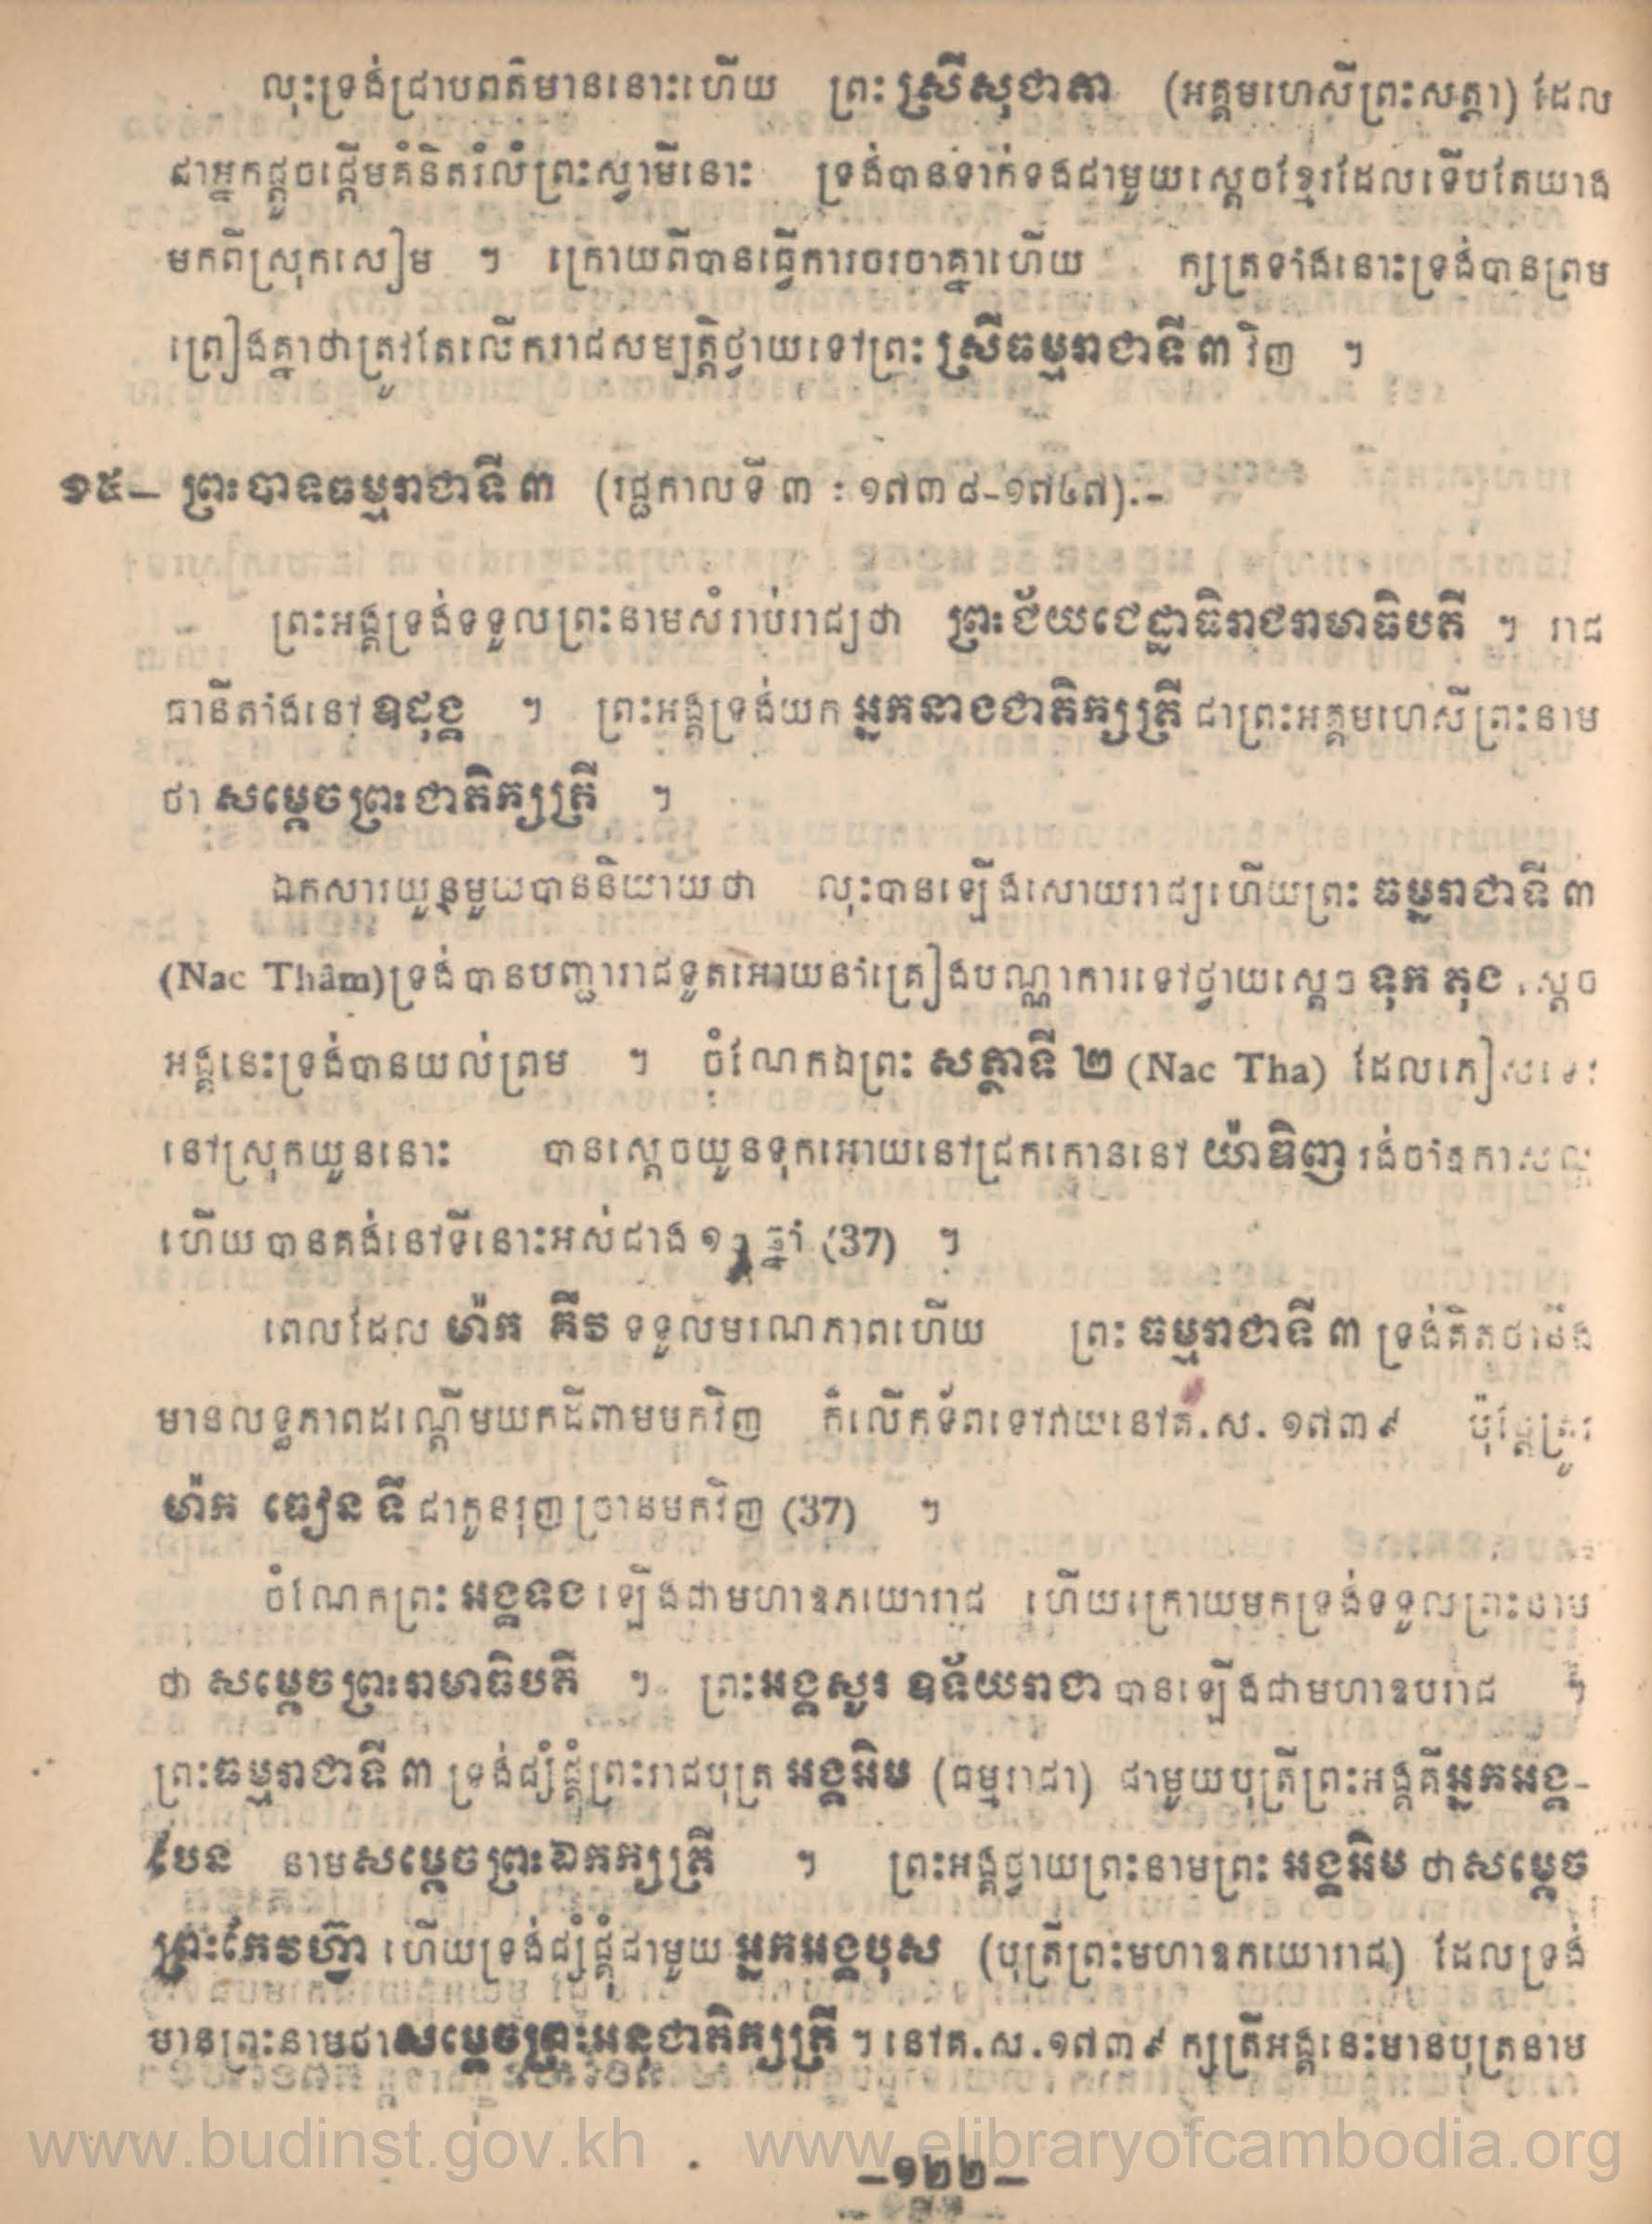 លុះទ្រង់ជ្រាបពត៌មាននោះហើយ ព្រះ ស្រីសុជាតា (អគ្គមហេសីព្រះសត្ថា) ដែល
ជាអ្នកផ្តួចផ្តើមគំនិតរំលំព្រះស្វាមីនោះ ទ្រង់បានទាក់ទងជាមួយស្តេចខ្មែរដែលទើបតែយាង
មកពីស្រុកសៀម ។ ក្រោយពីបានធ្វើការចរចាគ្នាហើយ ក្សត្រទាំងនោះទ្រង់បានព្រម
ព្រៀងគ្នាថាត្រូវតែលើករាជសម្បត្តិថ្វាយទៅព្រះ ស្រីធម្មរាជាទី ៣ វិញ ។
១៥– ព្រះបាទធម្មរាជាទី ៣ (រជ្ជកាលទី ៣ : ១៧៣៨-១៧៤៧).–
ព្រះអង្គទ្រង់ទទួលព្រះនាមសំរាប់រាជ្យថា ព្រះជ័យជេដ្ឋាធិរាជរាមាធិបតី ។ រាជ
ធានីតាំងនៅ ឧដុង្គ ។ ព្រះអង្គទ្រង់យក អ្នកនាងជាតិក្សត្រី ជាព្រះអគ្គមហេសីព្រះនាម
ថា សម្តេចព្រះជាតិក្សត្រី ។
ឯកសារយួនមួយបាននិយាយថា លុះបានឡើងសោយរាជ្យហើយព្រះ ធម្មរាជាទី ៣
(Nac Thâm) ទ្រង់បានបញ្ជារាជទូតអោយនាំគ្រឿងបណ្ណាការទៅថ្វាយស្តេច ទុក តុង ស្តេច
អង្គនេះទ្រង់បានយល់ព្រម ។ ចំណែកឯព្រះ សត្ថាទី ២ (Nac Tha) ដែលភៀសទៅ
នៅស្រុកយួននោះ បានស្តេចយួនទុកអោយនៅជ្រកកោននៅ យ៉ាឌិញ រង់ចាំឧកាសល្អ
ហើយបានគង់នៅទីនោះអស់ជាង ១ ឆ្នាំ (37) ។
ពេលដែល ម៉ាក គីវ ទទួលមរណភាពហើយ ព្រះ ធម្មរាជាទី ៣ ទ្រង់គិតថានឹង
មានលទ្ធភាពដណ្តើមយកដីពាមមកវិញ ក៏លើកទ័ពទៅវាយនៅគ.ស. ១៧៣៩ ប៉ុន្តែត្រូវ
ម៉ាក ធៀន ទី ជាកូនរុញច្រានមកវិញ (37) ។
ចំណែកព្រះ អង្គទង ឡើងជាមហាឧភយោរាជ ហើយក្រោយមកទ្រង់ទទួលព្រះនាម
ថា សម្តេចព្រះរាមាធិបតី ។ ព្រះអង្គសូរ ឧទ័យរាជា បានឡើងជាមហាឧបរាជ ។
ព្រះធម្មរាជាទី ៣ ទ្រង់ផ្សំផ្គុំព្រះរាជបុត្រ អង្គអិម (ធម្មរាជា) ជាមួយបុត្រីព្រះអង្គគឺអ្នកអង្គ-
បែន នាមសម្តេចព្រះឯកក្សត្រី ។ ព្រះអង្គថ្វាយព្រះនាមព្រះ អង្គអិម ថាសម្តេច
ព្រះកែវហ៊្វា ហើយទ្រង់ផ្សំផ្គុំជាមួយ អ្នកអង្គបុស (បុត្រីព្រះមហាឧភយោរាជ) ដែលទ្រង់
មានព្រះនាមថាសម្តេចព្រះអនុជាតិក្សត្រី ។ នៅគ.ស.១៧៣៩ ក្សត្រីអង្គនេះមានបុត្រនាម
www.budinst.gov.kh www.elibraryofcambodia.org
–១២២–